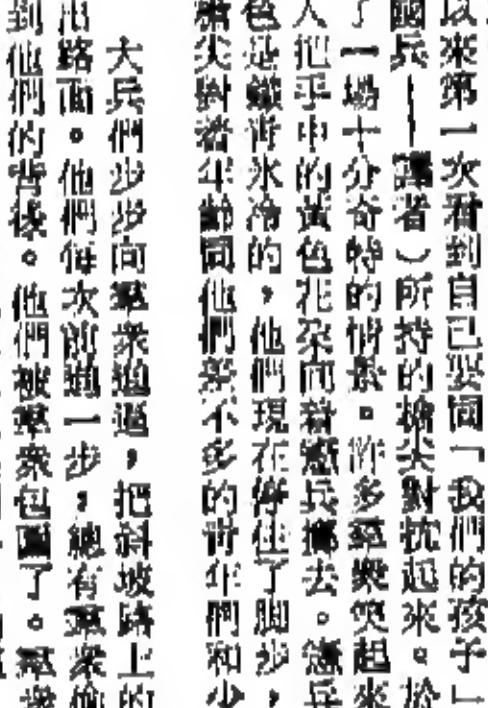 以來第一次看到自己要同「我們的孩子」
國兵——譯者）所持的槍尖對抗起來。於
了一場十分奇特的情景。許多羣衆笑起來
人把手中的黃色花朶向着憲兵擲去。憲兵
色是鐵青冰冷的，他們現在停住了脚步，
槍尖對着年齡同他們差不多的青年們和少
大兵們步步向羣衆迫逼，把斜坡路上的
出路面。他們每次前進一步，總有羣衆偷
到他們的背後。他們被羣衆包圍了。羣衆